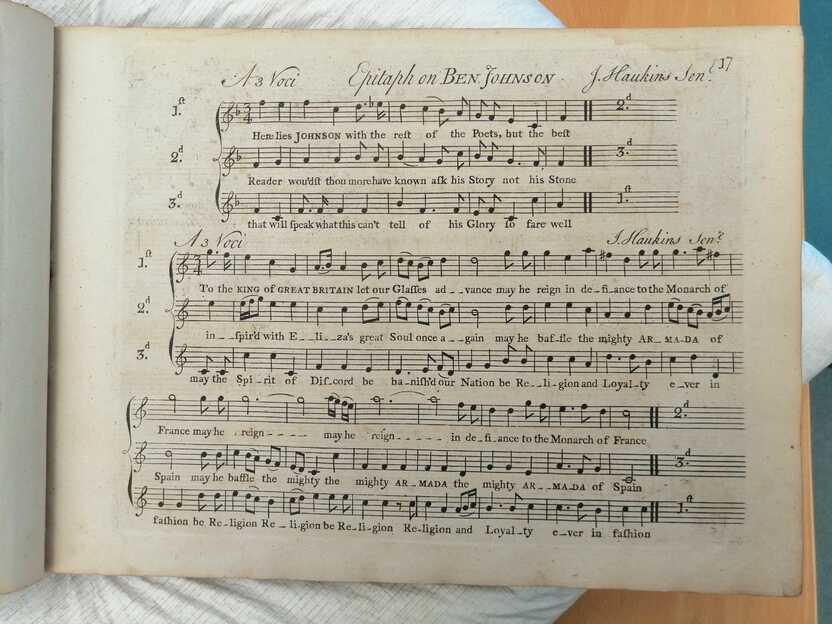 A 3 Voci Epitaph on BEN JOHNSON J. Haukins Senr. 17
1.st 2.d
Here lies JOHNSON with the reſt of the Poets, but the beſt
2.d 3.d
Reader wou'dſt thou more have known aſk his Story not his Stone
3.d 1.ſt
that will ſpeak what this can't tell of his Glory ſo fare well
A 3 Voci J. Haukins Senr.
1.ſt
To the KING of GREAT BRITAIN let our Glaſſes ad__vance may he reign in de_fi_ance to the Monarch of
2.d
in__ſpir'd with E_li_za's great Soul once a_gain may he baf_fle the mighty AR_MA_DA of
3.d
may the Spi_rit of Diſ_cord be ba_niſh'd our Nation be Re_li_gion and Loyal_ty e_ver in
2.d
France may he reign____ may he reign_____ in de_fi_ance to the Monarch of France
3.d
Spain may he baffle the mighty the mighty AR_MADA the mighty AR_MA_DA of Spain
1.ſt
faſhion be Re_ligion Re_li_gion be Re_li_gion Re_ligion and Loyal_ty e_ver in faſhion